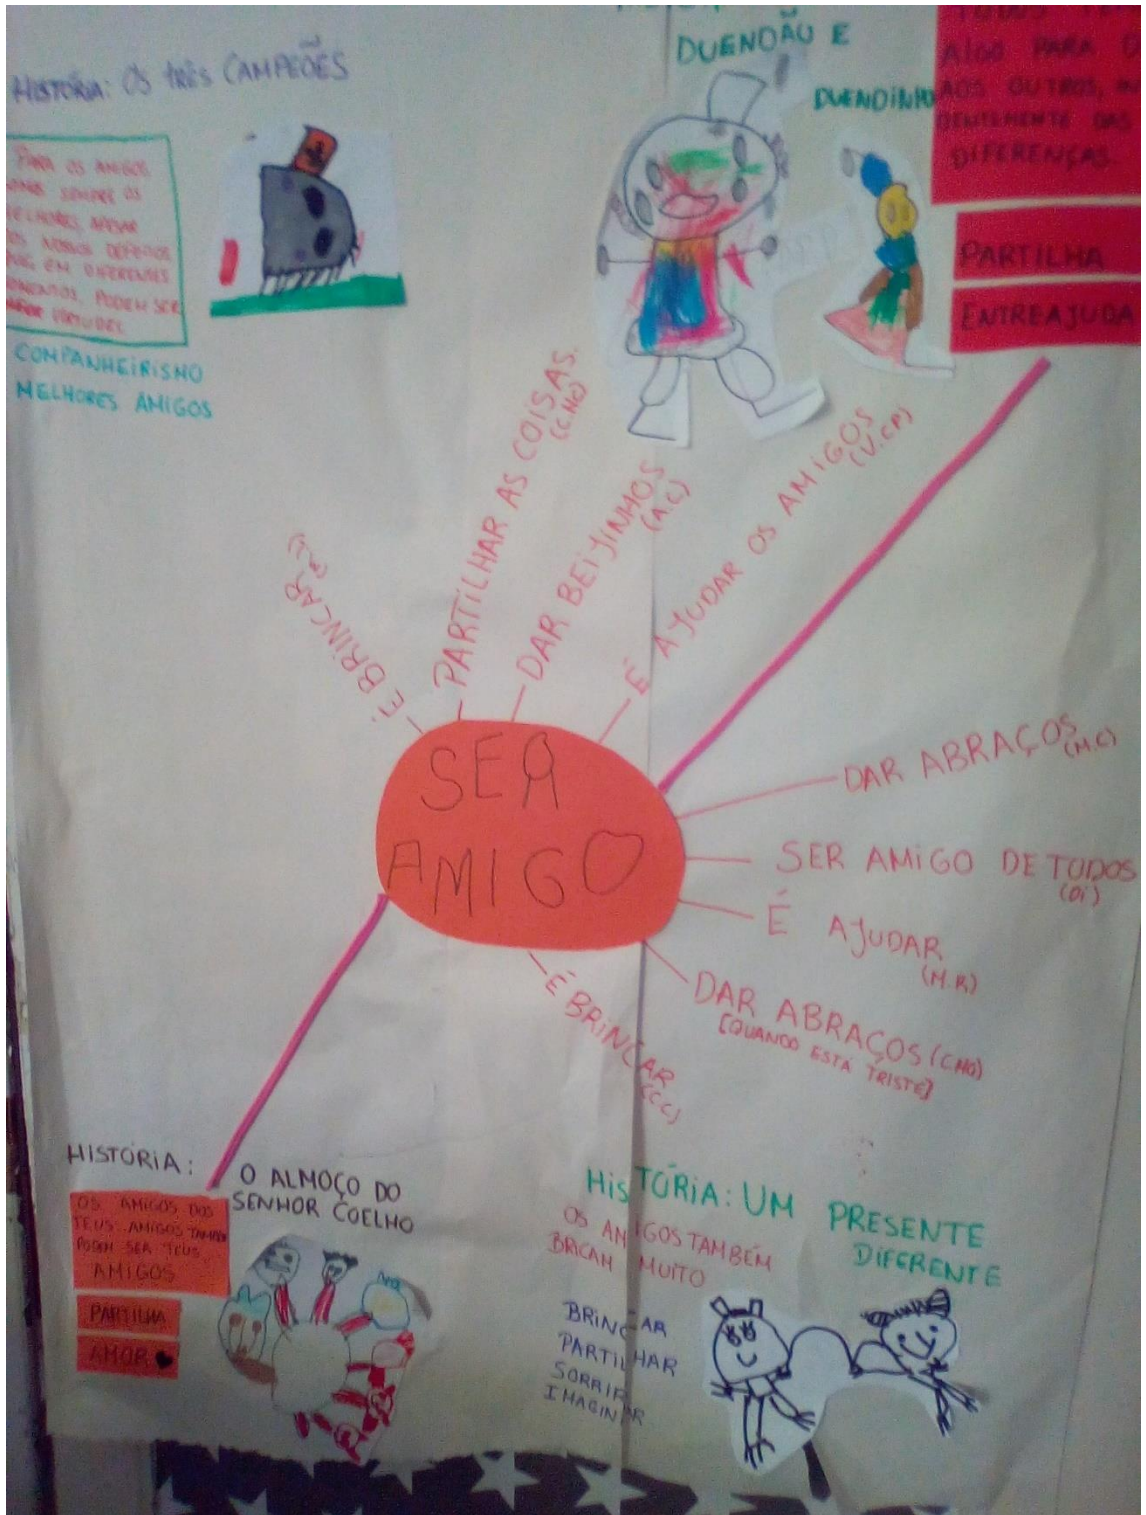 HISTÓRIA: OS TRÊS CAMPEÕES
PARA OS AMIGOS
SOMOS SEMPRE OS
MELHORES, APESAR
DOS NOSSOS DEFEITOS
QUE EM DIFERENTES
MOMENTOS, PODEM SER
VIRTUDES
COMPANHEIRISMO
MELHORES AMIGOS
DUENDÃO E
DUENDINHO
TODOS
ALGO PARA
AOS OUTROS,
DENTEMENTE DAS
DIFERENÇAS
PARTILHA
ENTREAJUDA
É BRINCAR
PARTILHAR AS COISAS.
(C.NO)
DAR BEIJINHOS
(A.C)
É AJUDAR OS AMIGOS
(V.CP)
SER
AMIGO
DAR ABRAÇOS
(M.C)
SER AMIGO DE TUDOS
(DI)
É AJUDAR
(M.R)
DAR ABRAÇOS (CMO)
[QUANDO ESTÁ TRISTE]
É BRINCAR
(CC)
HISTÓRIA: O ALMOÇO DO
SENHOR COELHO
OS AMIGOS DOS
TEUS AMIGOS TAMBÉM
PODEM SER TEUS
AMIGOS
PARTILHA
AMOR
HISTÓRIA: UM PRESENTE
DIFERENTE
OS AMIGOS TAMBÉM
BRICAM MUITO
BRINCAR
PARTILHAR
SORRIR
IMAGINAR